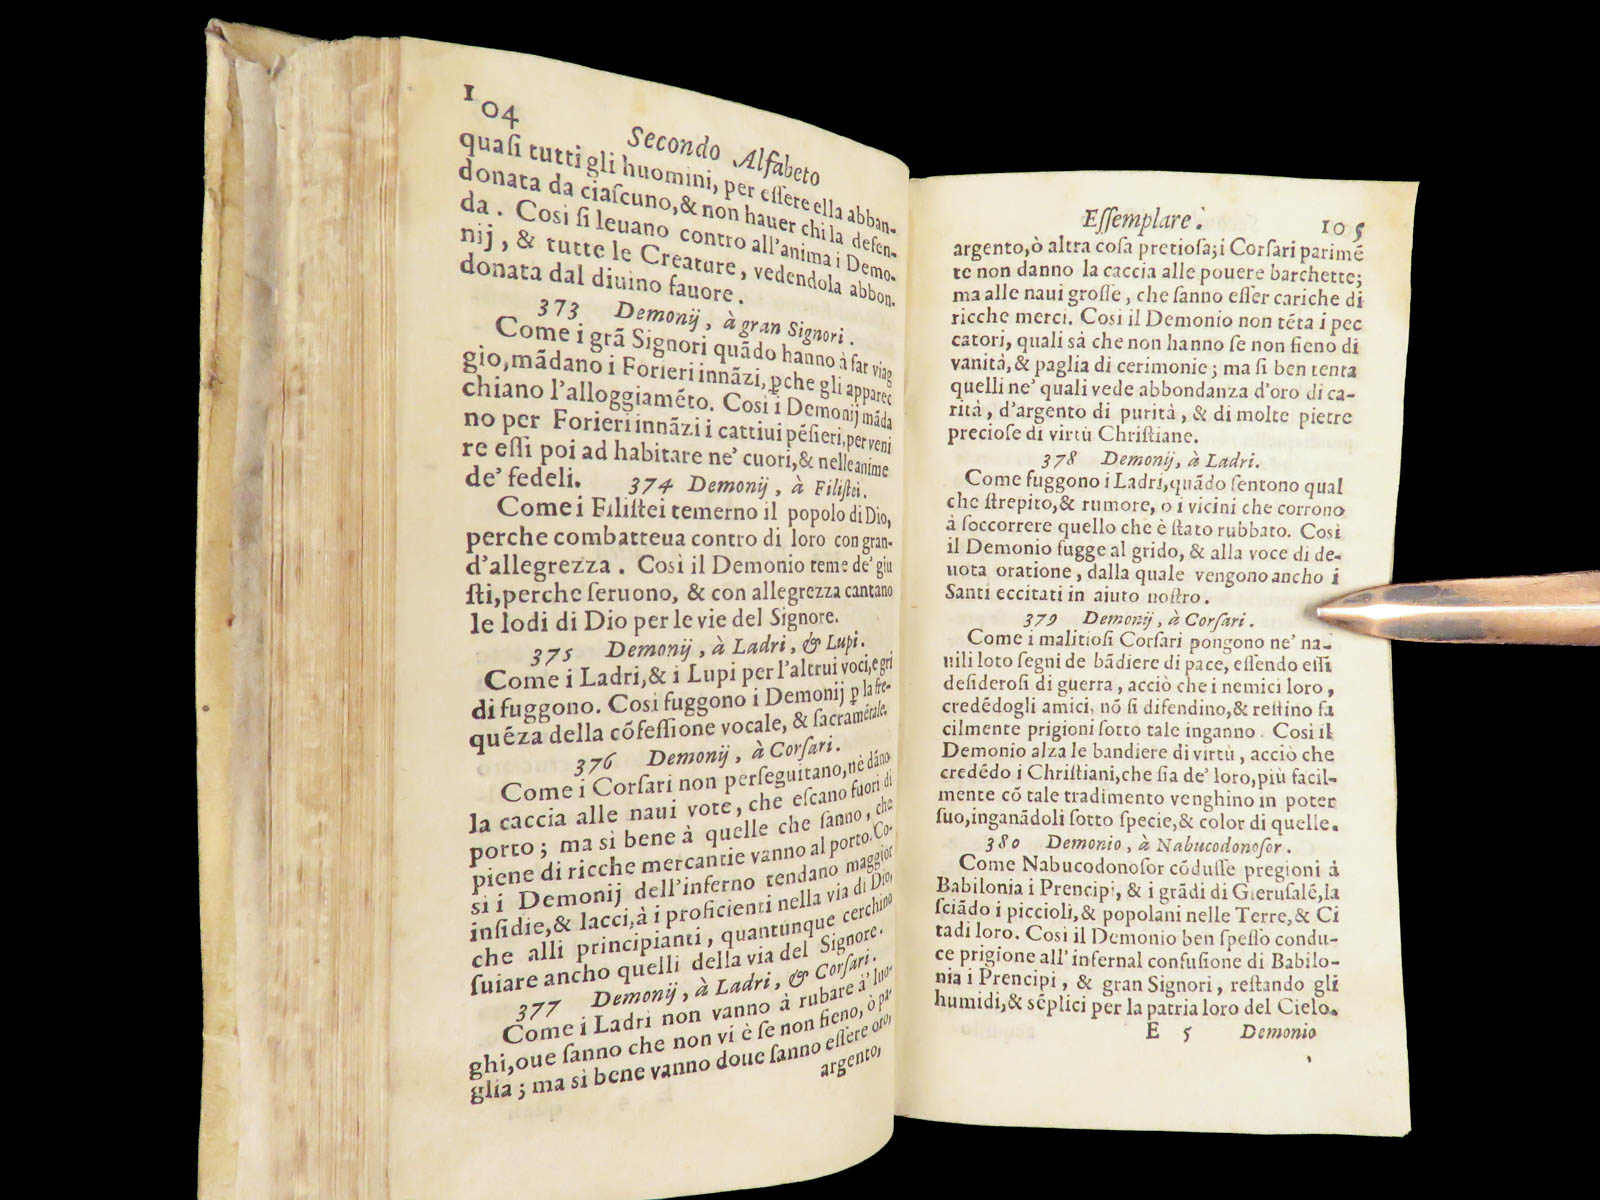 104
Secondo Alfabeto
quaſi tutti gli huomini, per eſſere ella abban-
donata da ciaſcuno, & non hauer chi la defen-
da. Così ſi leuano contro all'anima i Demo-
nij, & tutte le Creature, vedendola abbon-
donata dal diuino fauore.
373 Demonij, à gran Signori.
Come i grã Signori quãdo hanno à far viag
gio, mãdano i Forieri innãzi, ꝑche gli apparec
chiano l'alloggiaméto. Così i Demonij mãda
no per Forieri innãzi i cattiui péſieri, per veni
re eſſi poi ad habitare ne' cuori, & nelle anime
de' fedeli.
374 Demonij, à Filiſtei.
Come i Filiſtei temerno il popolo di Dio,
perche combatteua contro di loro con gran-
d'allegrezza. Così il Demonio teme de' giu
ſti, perche ſeruono, & con allegrezza cantano
le lodi di Dio per le vie del Signore.
375 Demonij, à Ladri, & Lupi.
Come i Ladri, & i Lupi per l'altrui voci, e gri
di fuggono. Così fuggono i Demonij ꝑ la fre-
quéza della cõfeſſione vocale, & ſacramétale.
376 Demonij, à Corſari.
Come i Corſari non perſeguitano, nè dãno
la caccia alle naui vote, che eſcano fuori di
porto; ma sì bene à quelle che ſanno, che
piene di ricche mercantie vanno al porto. Co-
si i Demonij dell'inferno tendano maggior
inſidie, & lacci, à i proficienti nella via di Dio,
che alli principianti, quantunque cerchino
ſuiare ancho quelli della via del Signore.
377 Demonij, à Ladri, & Corſari.
Come i Ladri non vanno à rubare à' luo-
ghi, oue ſanno che non vi è ſe non fieno, ò pa-
glia; ma sì bene vanno doue ſanno eſſere oro,
argento,
Eſſemplare.
105
argento, ò altra coſa pretioſa; i Corſari parimé
te non danno la caccia alle pouere barchette;
ma alle naui groſſe, che ſanno eſſer cariche di
ricche merci. Così il Demonio non téta i pec
catori, quali sà che non hanno ſe non fieno di
vanità, & paglia di cerimonie; ma ſi ben tenta
quelli ne' quali vede abbondanza d'oro di ca-
rità, d'argento di purità, & di molte pietre
precioſe di virtù Chriſtiane.
378 Demonij, à Ladri.
Come fuggono i Ladri, quãdo ſentono qual
che ſtrepito, & rumore, o i vicini che corrono
à ſoccorrere quello che è ſtato rubbato. Così
il Demonio fugge al grido, & alla voce di de-
uota oratione, dalla quale vengono ancho i
Santi eccitati in aiuto noſtro.
379 Demonij, à Corſari.
Come i malitioſi Corſari pongono ne' na-
uili loto ſegni de bãdiere di pace, eſſendo eſſi
deſideroſi di guerra, acciò che i nemici loro,
credédogli amici, nõ ſi difendino, & reſtino fa
cilmente prigioni ſotto tale inganno. Così il
Demonio alza le bandiere di virtù, acciò che
credédo i Chriſtiani, che ſia de' loro, più facil-
mente cõ tale tradimento venghino in poter
ſuo, inganãdoli ſotto ſpecie, & color di quelle.
380 Demonio, à Nabucodonoſor.
Come Nabucodonoſor cõduſſe pregioni à
Babilonia i Prencipi, & i grãdi di Gieruſalé, la
ſciãdo i piccioli, & popolani nelle Terre, & Ci
tadi loro. Così il Demonio ben ſpeſſo condu-
ce prigione all'infernal confuſione di Babilo-
nia i Prencipi, & gran Signori, reſtando gli
humidi, & séplici per la patria loro del Cielo.
E 5 Demonio